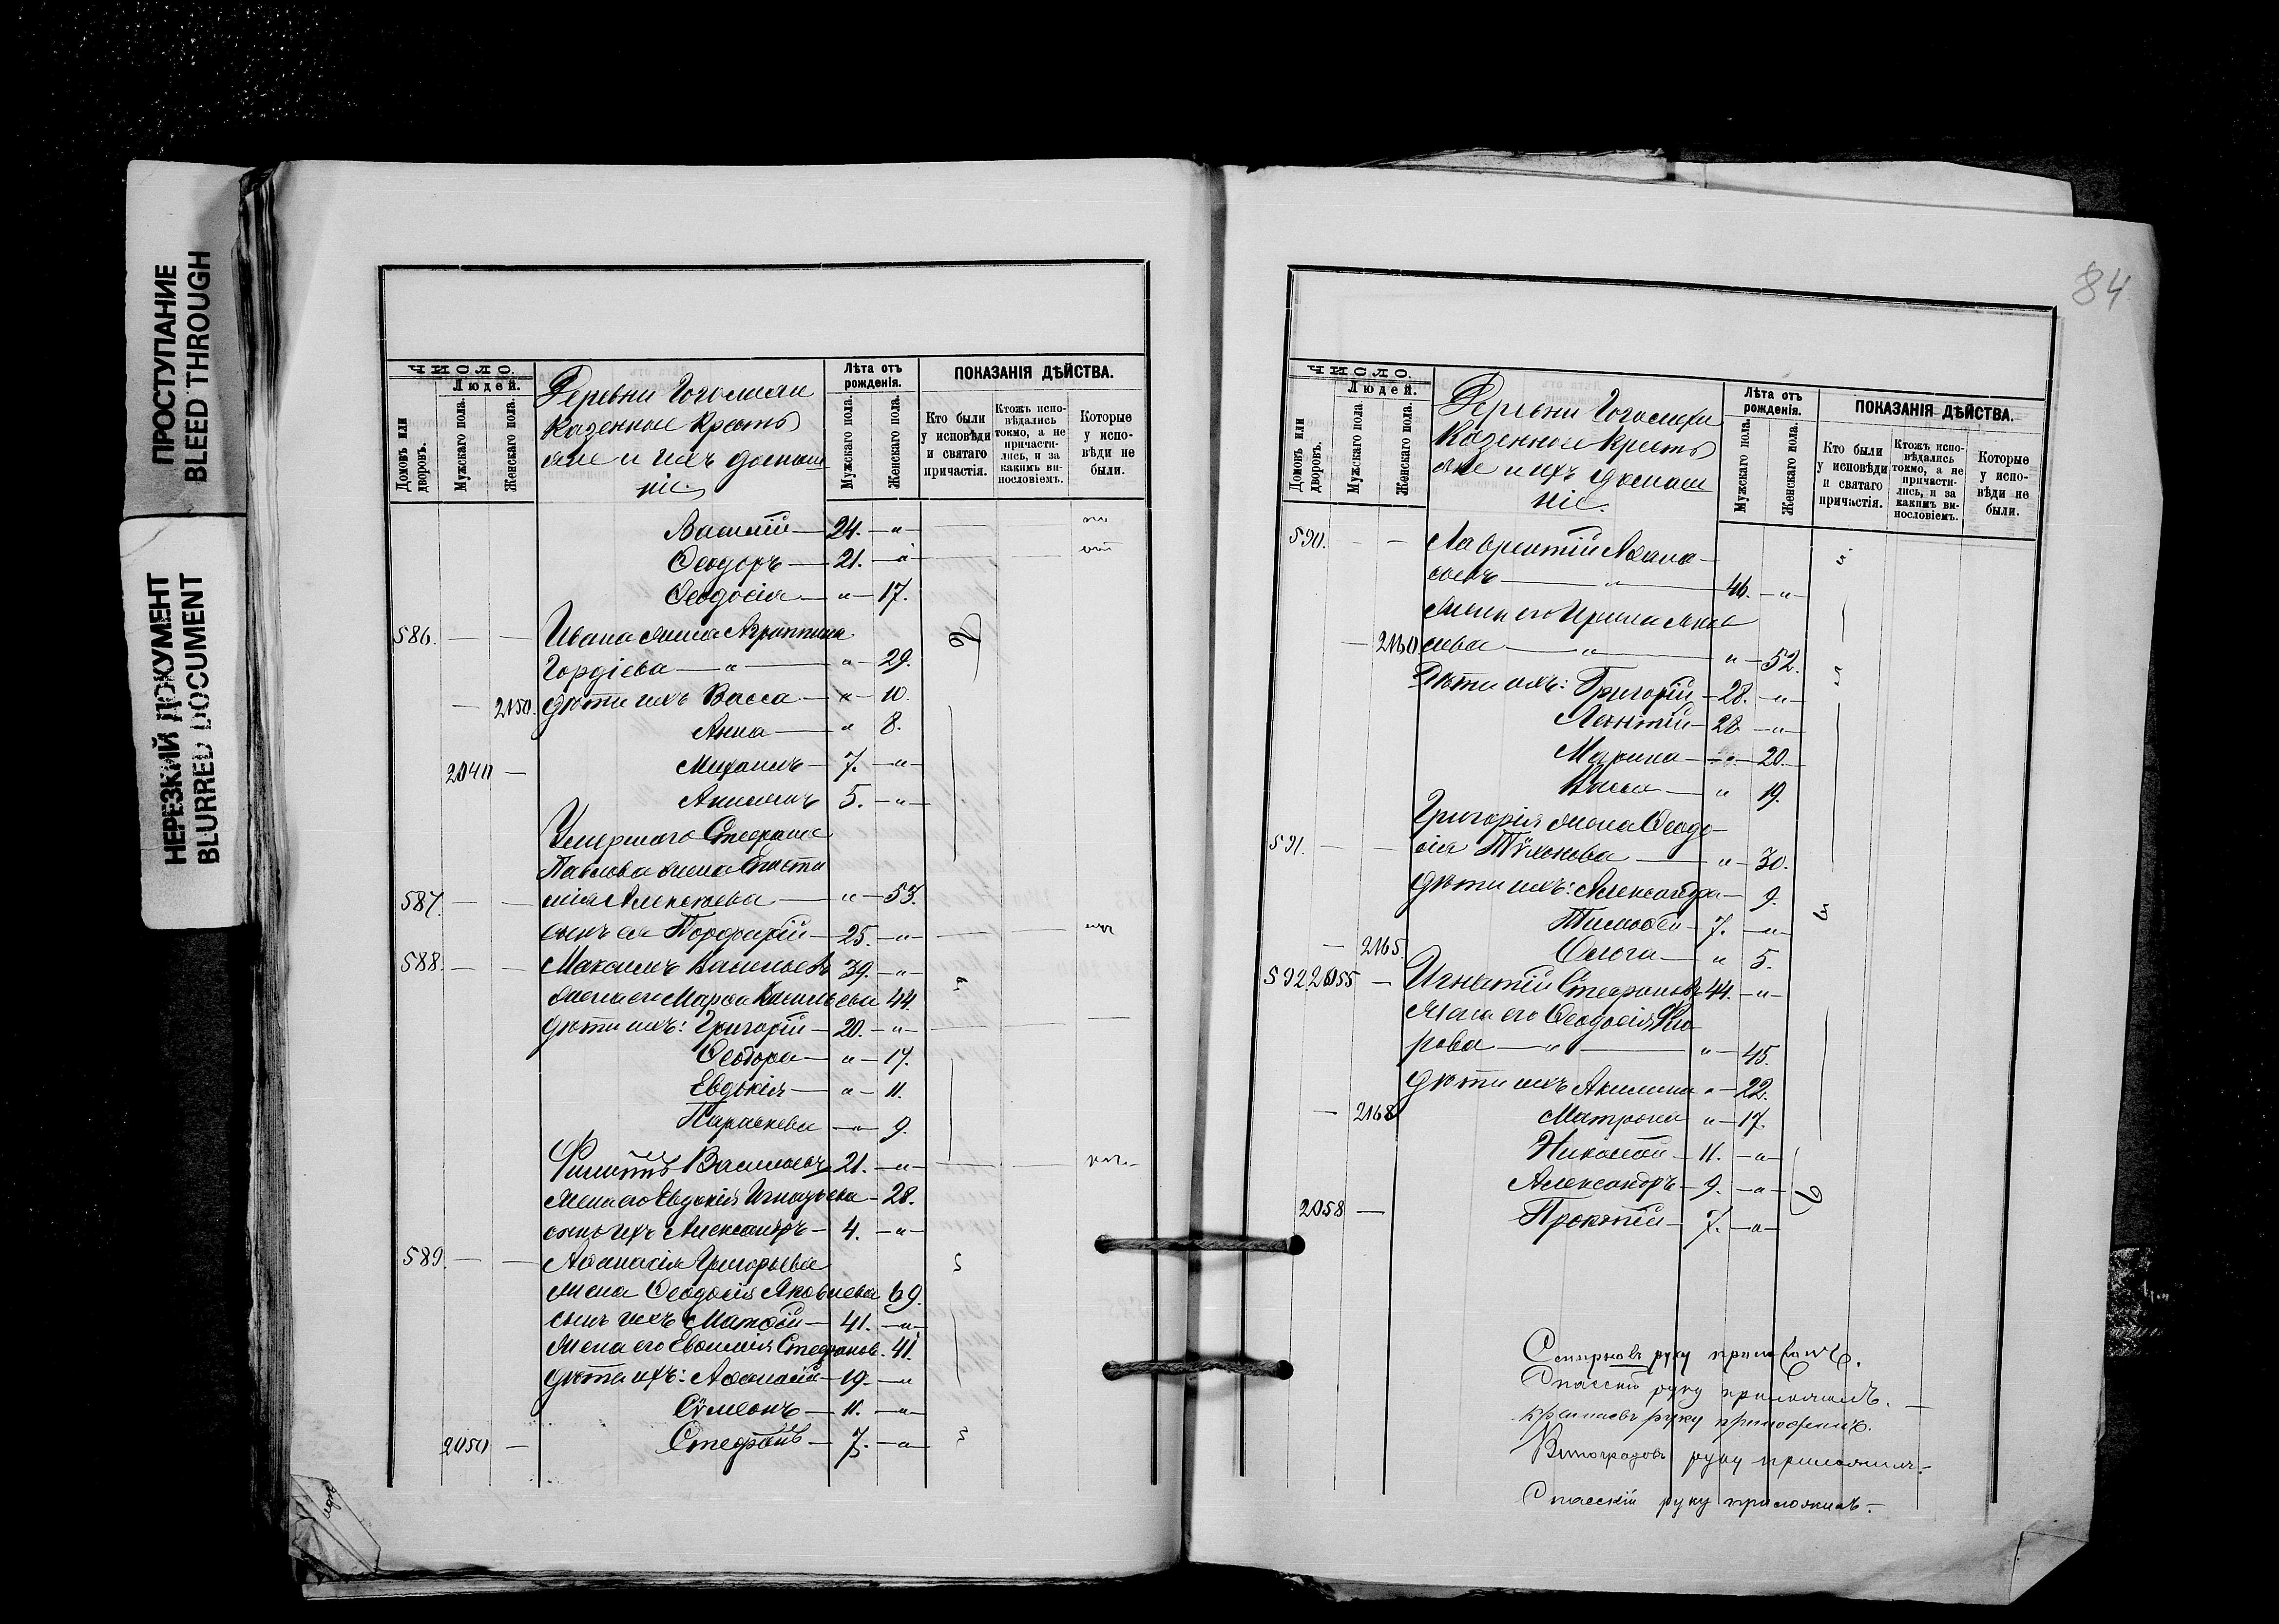 ПРОСТУПАНИЕ
BLEED THROUGH
НЕРЕЗКИЙ ДОКУМЕНТ
BLURRED DOCUMENT
ЧИСЛО.
Людей.
Домовъ или дворовъ.
Мужскаго пола.
Женскаго пола.
Деревни
Казенные кресть
яне и ихъ домаш
ніе
Лѣта отъ рожденія.
Мужскаго пола.
Женскаго пола.
ПОКАЗАНІЯ ДѢЙСТВА.
Кто были у исповѣди и святаго причастія.
Ктожъ исповѣдались токмо, а не причастились, и за какимъ винословіемъ.
Которые у исповѣди не были.
Василій — 24. — „ —
Ѳеодоръ — 21. — „ —
Ѳеодосія — „ — 17.
586. — — Ивана жена Агриппина
Гордіева — „ — „ — 29.
— 2150. дѣти ихъ Васса — „ — 10.
Анна — „ 8.
2040 — Михаилъ — 7. — „ —
5. — „ —
Умершаго Стефана
Павлова жена
587. — — мія Алексѣева — „ — 53.
сынъ ея Порфирій — 25. — „ —
588. — — Максимъ Васильевъ 39. — „ —
жена его Марѳа Васильева 44.
дѣти ихъ: Григорій — 20. — „ —
Ѳеодора — „ — 17.
Евдокія — „ — 11.
Параскева — „ — 9.
Филиппъ Васильевъ 21. — „ —
жена его Евдокія Игнатьева — 28.
сынъ ихъ Александръ — 4. — „ —
589. — — Аѳанасія Григорьева
жена Ѳеодосія Яковлева 69.
сынъ ихъ Матѳій — 41. — „ —
жена его Евѳимія Стефанов. 41.
дѣти ихъ: Аѳанасій — 19. — „
Сѵмеонъ — 11. — „ —
2050 — Стефанъ — 7. — „ —
84
ЧИСЛО.
Людей.
Домовъ или дворовъ.
Мужскаго пола.
Женскаго пола.
Деревни
Казенные кресть
яне и ихъ домаш
ніе.
Лѣта отъ рожденія.
Мужскаго пола.
Женскаго пола.
ПОКАЗАНІЯ ДѢЙСТВА.
Кто были у исповѣди и святаго причастія.
Ктожъ исповѣдались токмо, а не причастились, и за какимъ винословіемъ.
Которые у исповѣди не были.
590. — — Лаврентій Аѳана-
сьевъ — „ — 46. — „ —
жена его Ирина Яков
— 2160 лева — „ — „ — 52.
Дѣти ихъ: Григорій — 28. — „ —
Леонтій — 28 — „ —
Марина — „ — 20. —
Васса — „ 19.
Григорія жена Ѳеодо-
591. — — сія — „ — 30.
дѣти ихъ: Александра — 9.
Тимоѳей — 7. — „ —
— 2165. Ольга — „ 5.
592. 2055 — Игнатій Стефановъ 44. — „ —
Жена его Ѳеодосія
рова — „ — „ — 45.
дѣти ихъ Акилина „ — 22.
— 2168 Матрона „ — 17.
Николай — 11. — „ —
Александръ — 9. — „ —
2058 — Прокопій — 7. — „ —
руку приложилъ.
Спасскій руку приложилъ. —
руку приложилъ.
Виноградовъ руку приложилъ. —
Спасскій руку приложилъ. —